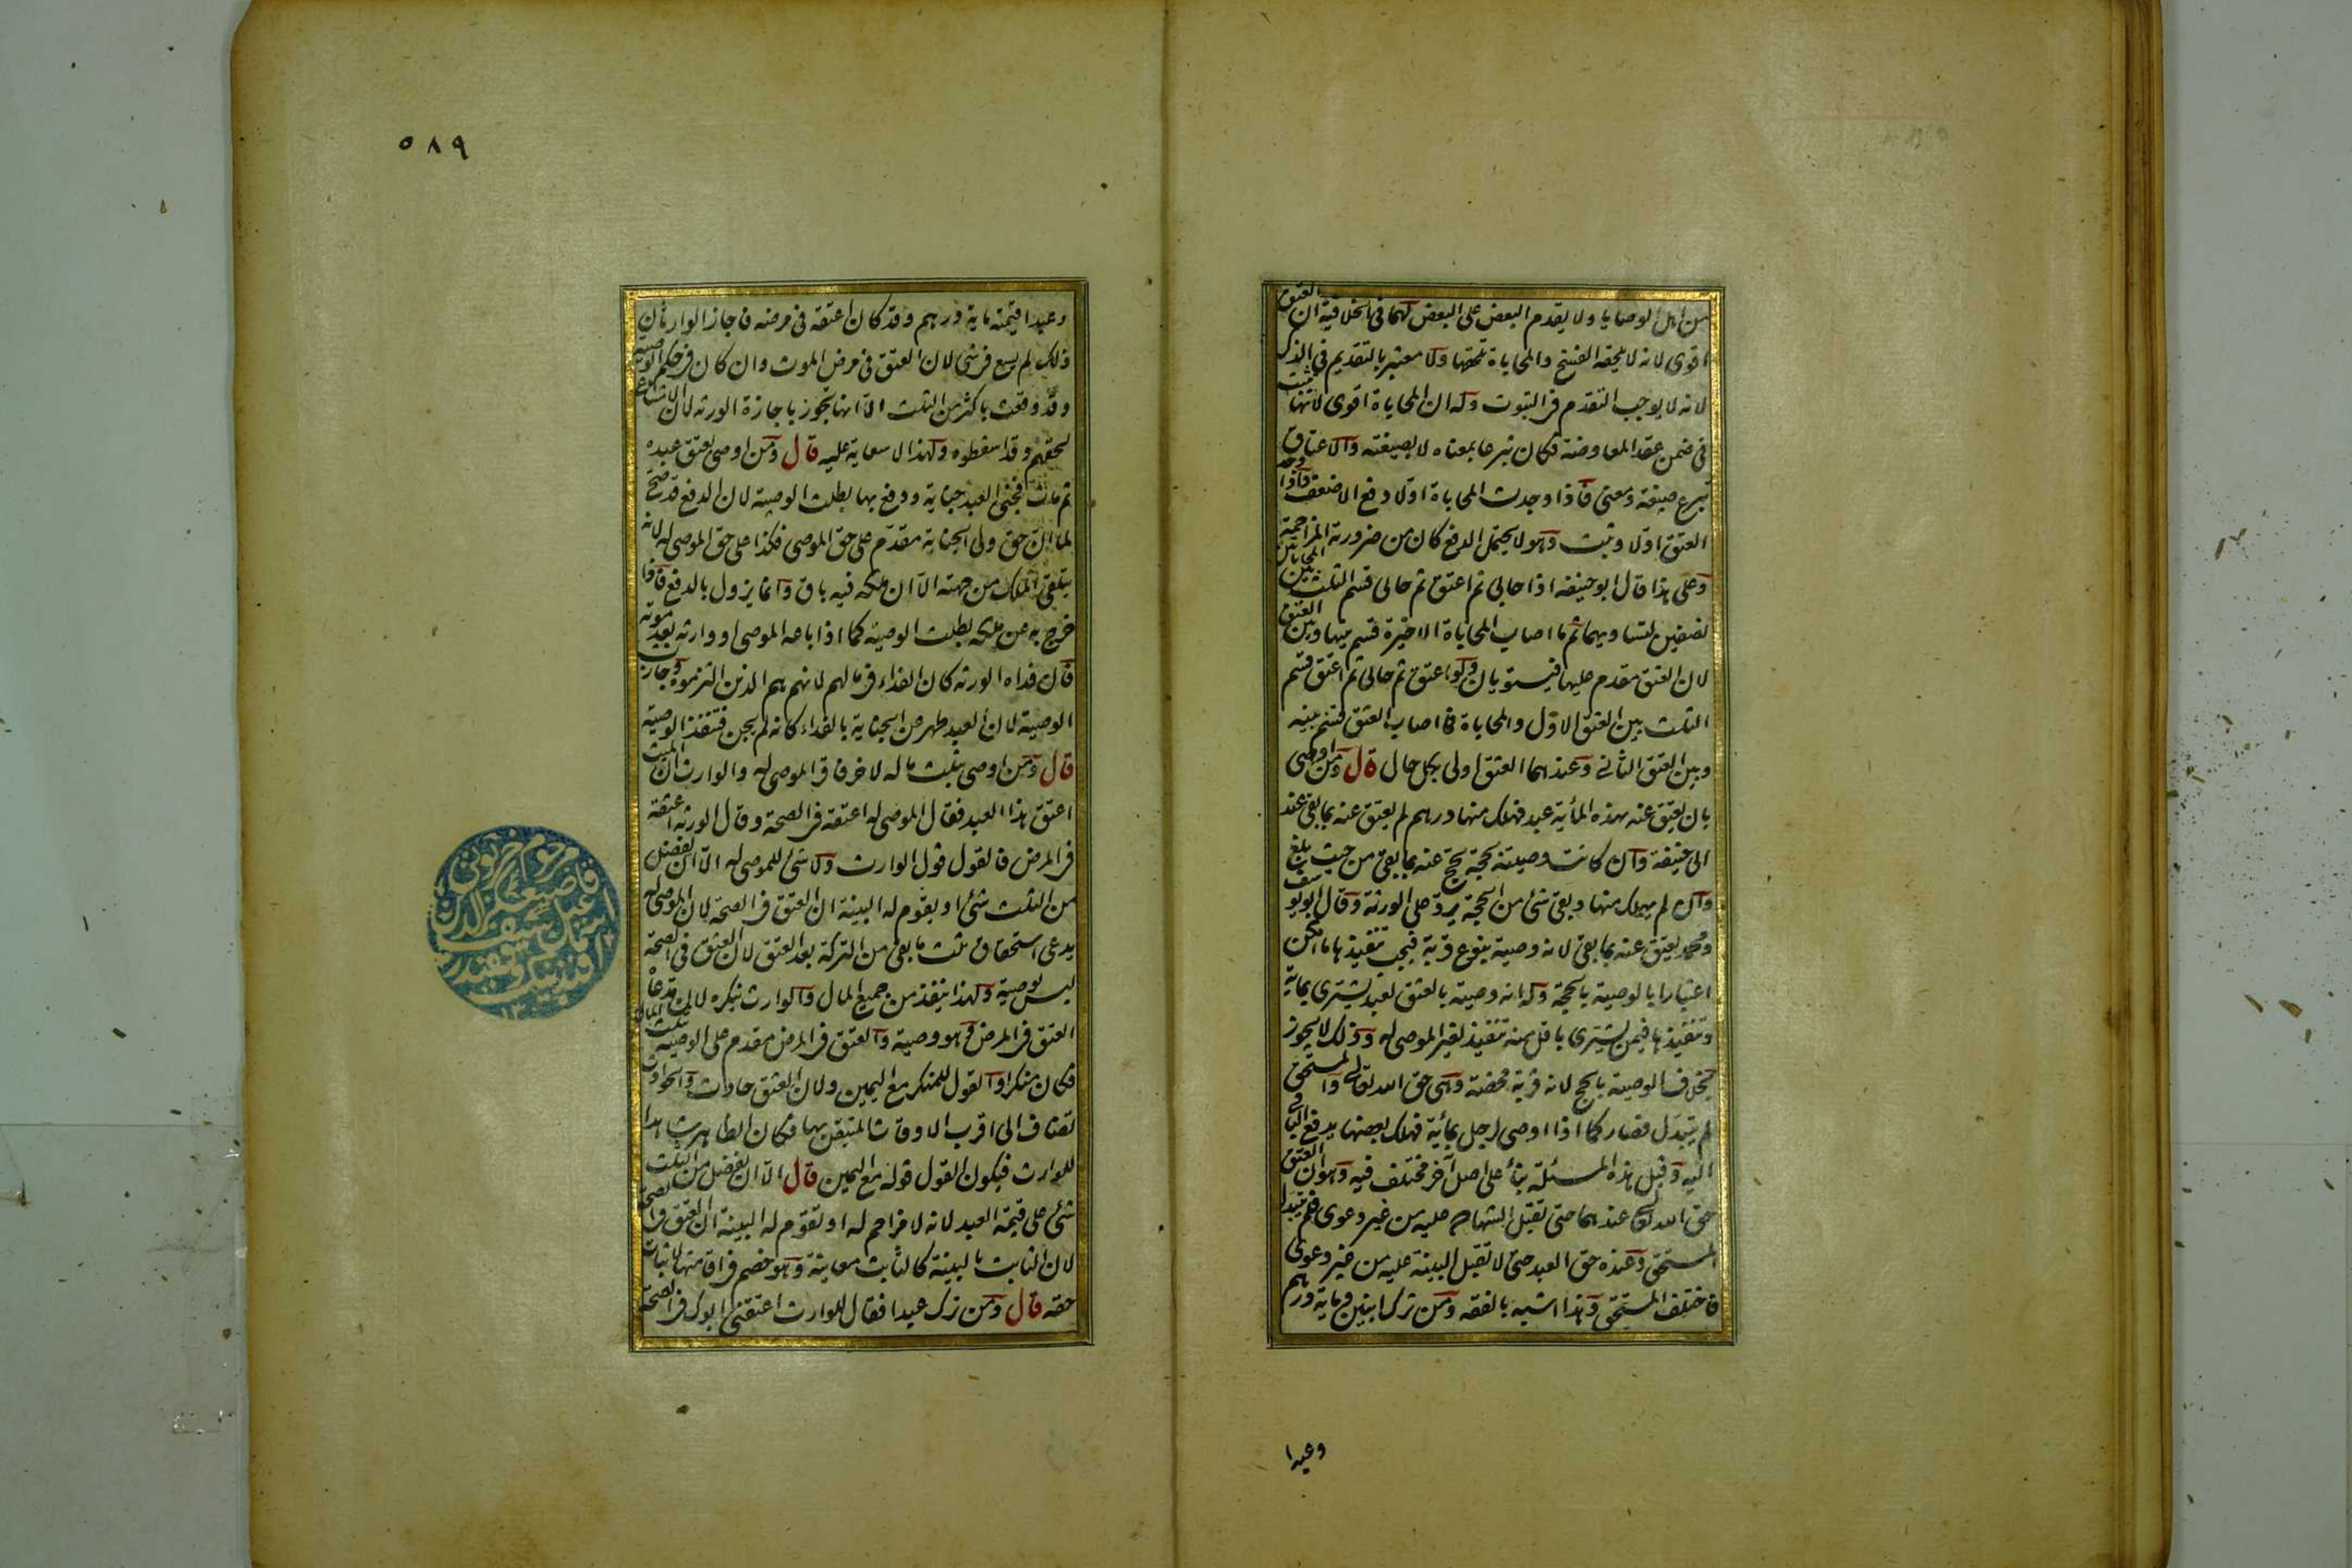 من اهل الوصايا ولا يقدم البعض على البعض لهما فى الخلافية ان العتق
اقوى لانه لا يلحقه الفسخ والمحاباة تلحقها ولا معتبر بالتقديم فى الذكر
لانه لا يوجب التقدم فى الثبوت وله ان المحاباة اقوى لانها تثبت
فى ضمن عقد المعاوضة فكان تبرعا بمعناه لا بصيغته والاعتاق
تبرع صيغة ومعنى فاذا وجدت المحاباة اولا دفع الاضعف فاذا وجد
العتق اولا وثبت وهو لا يحتمل الدفع كان من ضرورته المزاحمة
وعلى هذا قال ابو حنيفه اذا حابى ثم اعتق ثم حابى قسم الثلث بين المحاباتين
نصفين لتساويهما ثم ما اصاب المحاباة الاخيرة قسم بينها وبين العتق
لان العتق مقدم عليها فيستويان ولو اعتق ثم حابى ثم اعتق قسم
الثلث بين العتق الاول والمحاباة فما اصاب العتق قسم بينه
وبين العتق الثانى وعندهما العتق اولى بكل حال قال ومن اوصى
بان يعتق عنه بهذه المأية عبد فهلك منها درهم لم يعتق عنه بما بقى عند
ابى حنيفة وان كانت وصيته بحجة يحج عنه بما بقى من حيث يبلغ
وان لم يهلك منها وبقى شئ من الحجة يرد على الورثة وقال ابو يوسف
ومحمد يعتق عنه بما بقى لانه وصية بنوع قربة فيجب تنفيذها ما امكن
اعتبارا بالوصية بالحجة وله انه وصية بالعتق لعبد يشترى بماية
وتنفيذها فيمن يشترى باقل منه تنفيذ لغير الموصى له وذلك لا يجوز
بخلاف الوصية بالحج لانه قربة محضة وهى حق الله تعالى والمستحق
لم يتبدل فصار كما اذا اوصى لرجل بمأية فهلك بعضها يدفع الباقى
اليه وقيل هذه المسئلة بنأ على اصل آخر مختلف فيه وهو ان العتق
حق الله تعالى عندهما حتى تقبل الشهادة عليه من غير دعوى فلم يتبدل
المستحق وعنده حق العبد حتى لا تقبل البينة عليه من غير دعوى
فاختلف المستحق وهذا اشبه بالفقه ومن ترك ابنين وماية درهم
وعبدا
٥٨٩
وعبدا قيمته ماية درهم وقد كان اعتقه فى مرضه فاجاز الوارثان
ذلك لم يسع فى شئ لان العتق فى مرض الموت وان كان فى حكم الوصية
وقد وقعت باكثر من الثلث الا انها تجوز باجازة الورثه لان الامتناع
لحقهم وقد اسقطوه ولهذا لا سعاية عليه قال ومن اوصى بعتق عبده
ثم مات فجنى العبد جناية ودفع بها بطلت الوصية لان الدفع قد صح
لما ان حق ولى الجناية مقدم على حق الموصى فكذا على حق الموصى له لانه
يتلقى الملك من جهته الا ان ملكه فيه باق وانما يزول بالدفع فاذا
خرج به عن ملكه بطلت الوصية كما اذا باعه الموصى او وارثه بعد موته
فان فداه الورثه كان الفداء فى مالهم لانهم هم الذين التزموه وجازت
الوصية لان العبد طهر من الجناية بالفداء كانه لم يجن فتنفذ الوصية
قال ومن اوصى بثلث ماله لاخر فاقر الموصى له والوارث ان الميت
اعتق هذا العبد فقال الموصى له اعتقه فى الصحة وقال الورثه اعتقه
فى المرض فالقول قول الوارث ولا شئ للموصى له الا ان يفضل
من الثلث شئ او يقوم له البينة ان العتق فى الصحة لان الموصى له
يدعى استحقاق ثلث ما بقى من التركة بعد العتق لان العتق فى الصحة
ليس بوصية ولهذا ينفذ من جميع المال والوارث ينكره لان مدعاه
العتق فى المرض وهو وصية والعتق فى المرض مقدم على الوصية بثلث المال
فكان منكرا والقول للمنكر مع اليمين ولان العتق حادث والحوادث
تضاف الى اقرب الاوقات المتيقن بها فكان الظاهر شاهدا
للوارث فيكون القول قوله مع اليمين قال الا ان يفضل من الثلث
شئ على قيمة العبد لانه لا مزاحم له او تقوم له البينة ان العتق فى الصحة
لان الثابت بالبينة كالثابت معاينة وهو خصم فى اقامتها لاثبات
حقه قال ومن ترك عبدا فقال للوارث اعتقنى ابوك فى الصحة